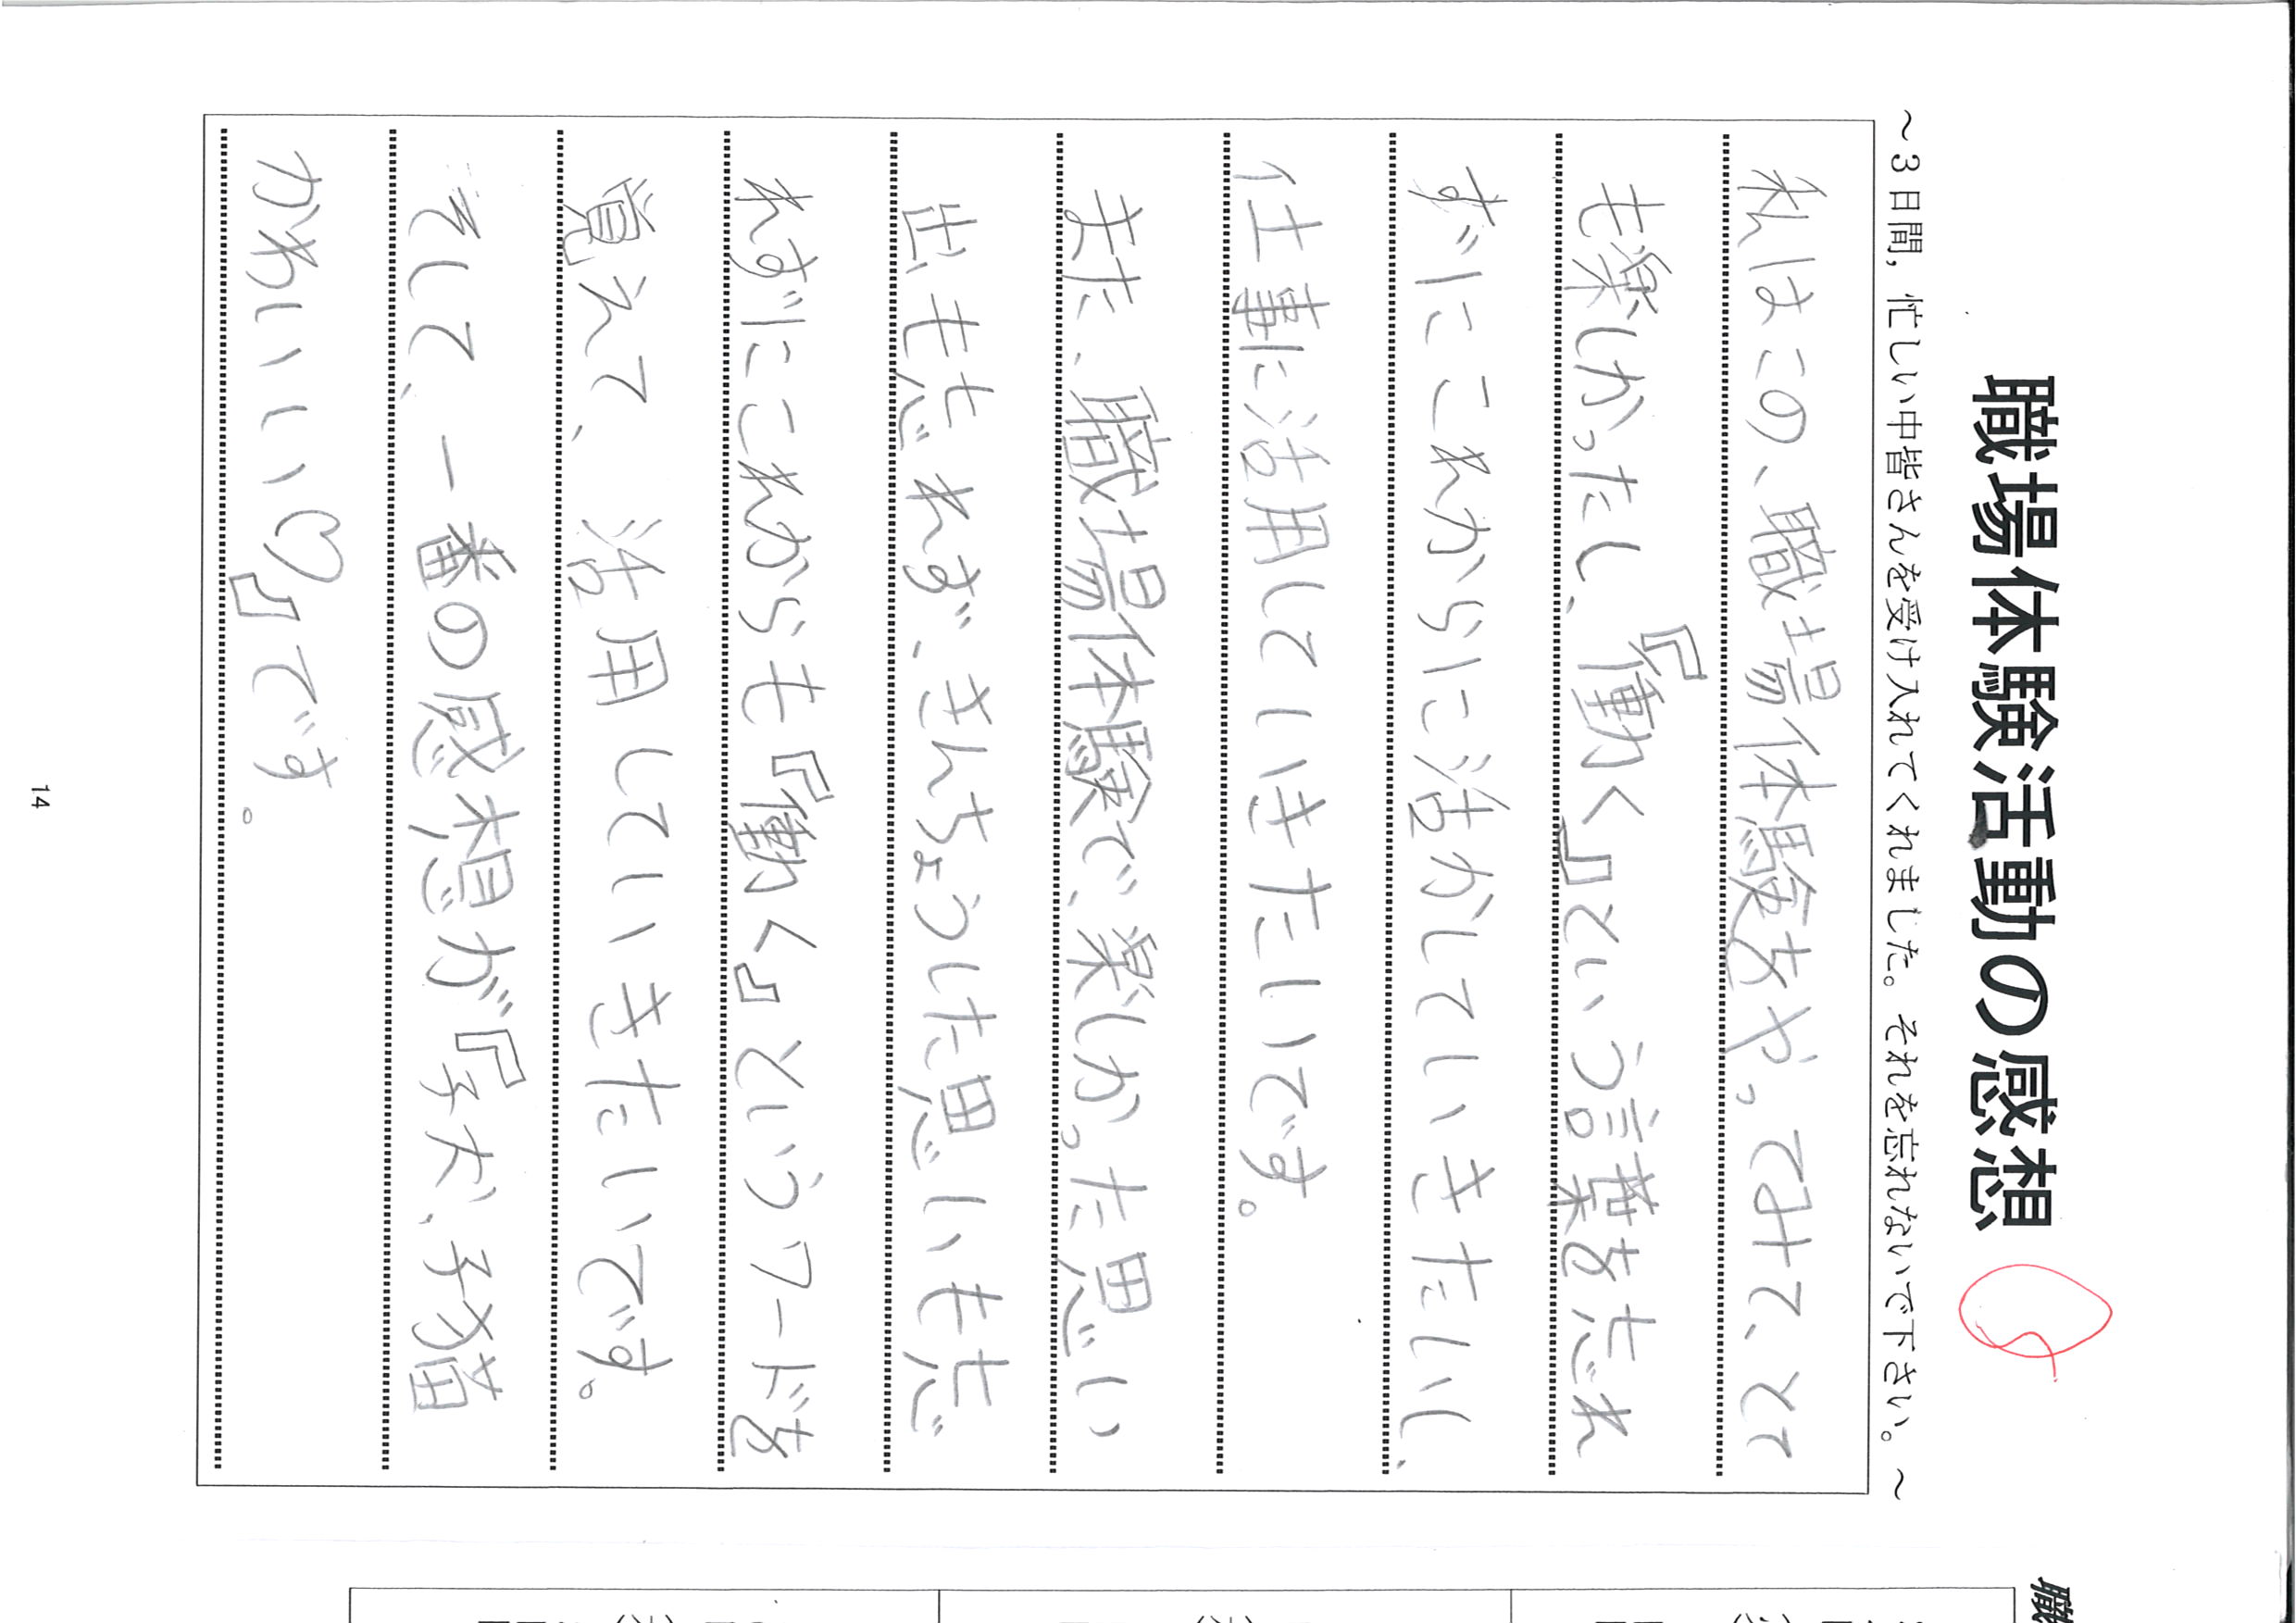 職場体験活動の感想
～3日間，忙しい中皆さんを受け入れてくれました。それを忘れないで下さい。～
私はこの、職場体験をやってみて、とて
も楽しかったし、『働く』という言葉を忘れ
ずにこれからに活かしていきたいし、
仕事に活用していきたいです。
また、職場体験で、楽しかった思い
出も忘れず、きんちょうした思いも忘
れずにこれからも『働く』というワードを
覚えて、活用していきたいです。
そして、一番の感想が『子犬、子猫
かわいい♡』です。
14
職